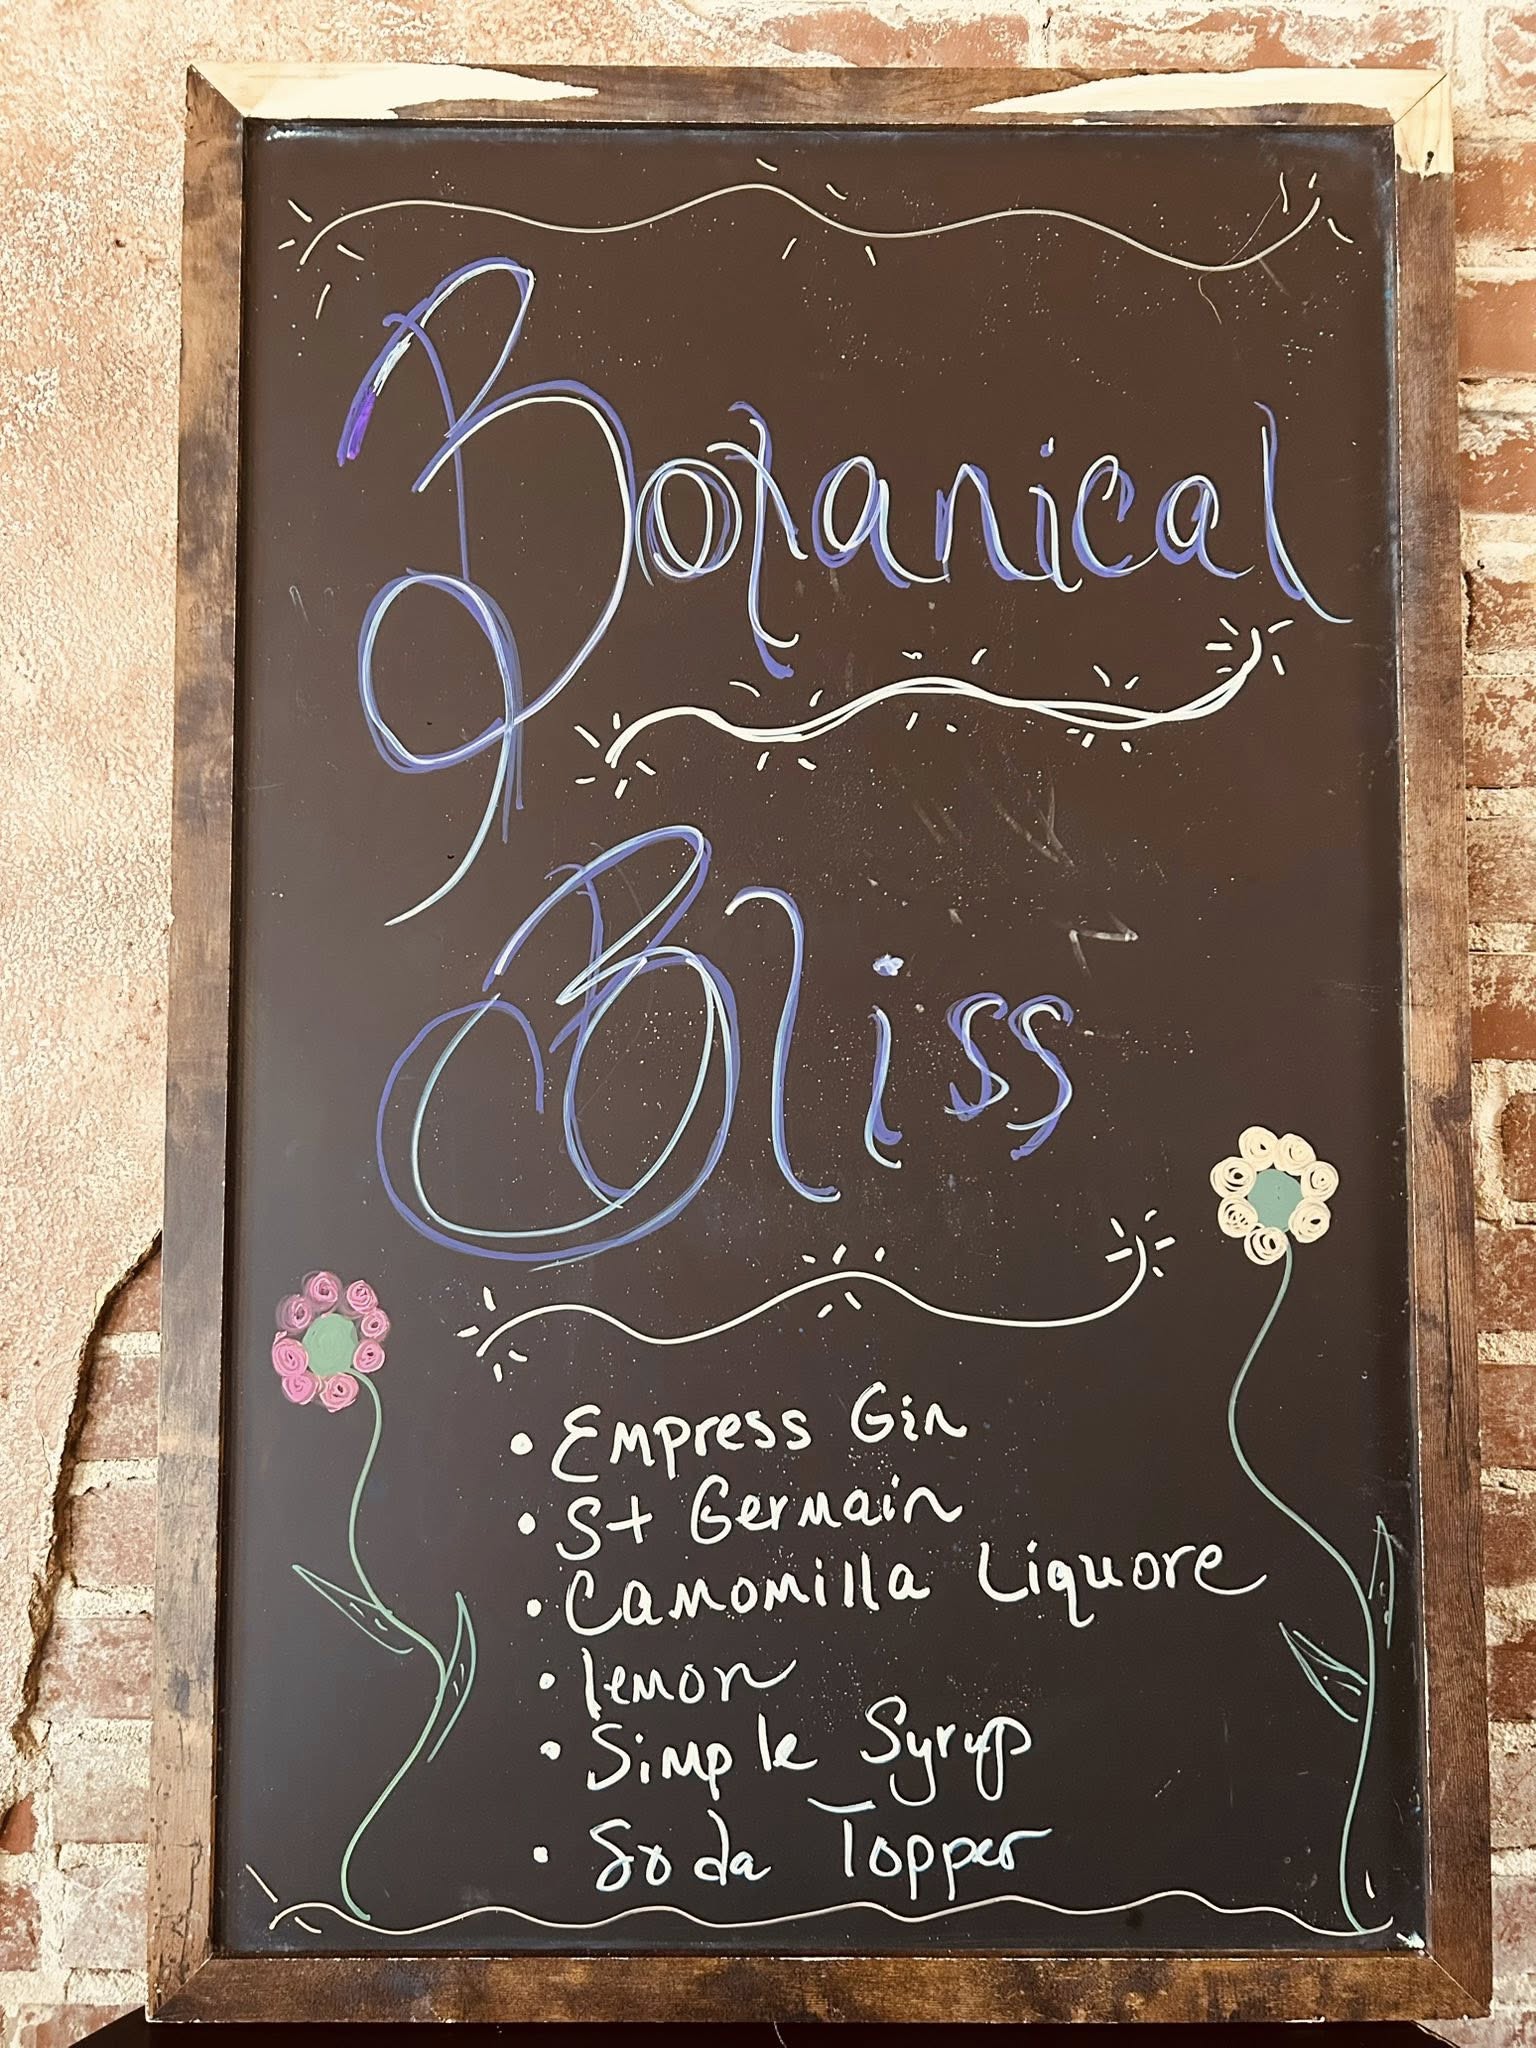 Botanical
Bliss
• Empress Gin
• St Germain
• Camomilla Liquore
• lemon
• Simple Syrup
• Soda Topper